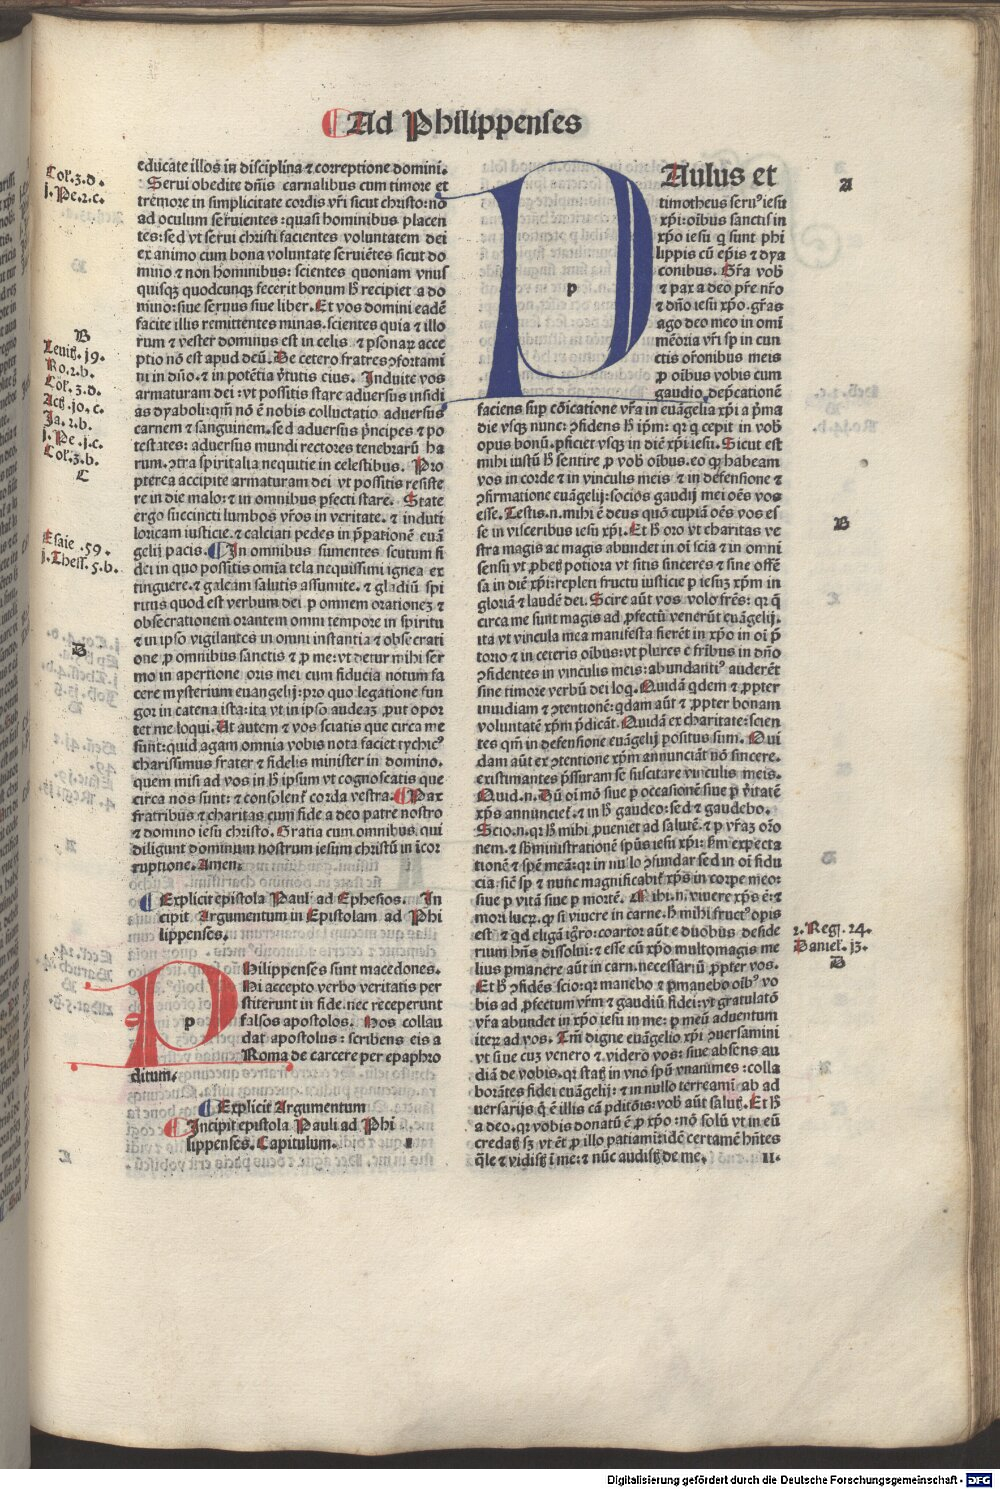 Ad Philippenses
educate illos in disciplina ⁊ correptione domini.
Serui obedite dñis carnalibus cum timore et
tremore in simplicitate cordis vr̃i sicut christo: nõ
ad oculum seruientes: quasi hominibus placen
tes: sed vt serui christi facientes voluntatem dei
ex animo cum bona voluntate seruiẽtes sicut do
mino ⁊ non hominibus: scientes quoniam vnus
quisq̢ quodcunq̢ fecerit bonum h̃ recipiet a do
mino: siue seruus siue liber. Et vos domini eadẽ
facite illis remittentes minas. scientes quia ⁊ illo
rum ⁊ vester dominus est in celis ⁊ ꝑsonaꝝ acce
ptio nõ est apud deũ. De cetero fratres ↄfortami
ni in dño. ⁊ in potẽtia ṽtutis eius. Induite vos
armaturam dei: vt possitis stare aduersus insidi
as dyaboli: qm̃ nõ ẽ nobis colluctatio aduersus
carnem ⁊ sanguinem. sed aduersus p̃ncipes ⁊ po
testates: aduersus mundi rectores tenebrarũ ha
rum. ↄtra spiritalia nequitie in celestibus. Pro
pterea accipite armaturam dei vt possitis resiste
re in die malo: ⁊ in omnibus ꝑfecti stare. State
ergo succincti lumbos vr̃os in veritate. ⁊ induti
loricam iusticie. ⁊ calciati pedes in p̃pationẽ euã
gelij pacis. In omnibus sumentes scutum fi
dei in quo possitis omĩa tela nequissimi ignea ex
tinguere. ⁊ galeam salutis assumite. ⁊ gladiũ spi
ritus quod est verbum dei ꝑ omnem orationeꝫ ⁊
obsecrationem orantem omni tempore in spiritu
⁊ in ipso vigilantes in omni instantia ⁊ obsecrati
one ꝓ omnibus sanctis ⁊ ꝓ me: vt detur mihi ser
mo in apertione oris mei cum fiducia notum fa
cere mysterium euangelij: pro quo legatione fun
gor in catena ista: ita vt in ipso audeaꝫ ꝓut opor
tet me loqui. Ut autem ⁊ vos sciatis que circa me
sunt: quid agam omnia vobis nota faciet tychicꝰ
charissimus frater ⁊ fidelis minister in domino.
quem misi ad vos in h̃ ipsum vt cognoscatis que
circa nos sunt: ⁊ consolent̃ corda vestra. Pax
fratribus ⁊ charitas cum fide a deo patre nostro
⁊ domino iesu christo. Gratia cum omnibus qui
diligunt dominum nostrum iesum christũ in ĩcor
ruptione. Amen.
Explicit epistola Pauli ad Ephesios. In
cipit Argumentum in Epistolam ad Phi
lippenses.
p
Philippenses sunt macedones.
Hi accepto verbo veritatis per
stiterunt in fide. nec receperunt
falsos apostolos. Hos collau
dat apostolus: scribens eis a
Roma de carcere per epaphro
ditum.
Explicit Argumentum
Incipit epistola Pauli ad Phi
lippenses. Capitulum.
I
Col̃.3.d.
j.Pe.2.c.
B
Leuit̃.j9.
Ro.2.b.
Col̃.3.d.
Act̃.jo.c.
Ja.2.b.
j.Pe.j.c.
Col̃.3.b.
C
Esaie .59.
j.Thess̃.5.b.
D
p
Aulus et
timotheus seruꝰ iesu
xp̃i: oĩbus sanctis in
xp̃o iesu q̃ sunt phi
lippis cũ ep̃is ⁊ dya
conibus. Gr̃a vob̃
⁊ pax a deo pr̃e nr̃o
⁊ dño iesu xp̃o. gr̃as
ago deo meo in omĩ
mẽoria vr̃i sꝑ in cun
ctis or̃onibus meis
ꝓ oĩbus vobis cum
gaudio dep̃cationẽ
faciens suꝑ cõicatione vr̃a in euãgelia xp̃i a p̃ma
die vsq̢ nunc: ↄfidens h̃ ip̃m: qꝛ q̃ cepit in vob̃
opus bonũ. ꝑficiet vsq̢ in diẽ xp̃i iesu. Sicut est
mihi iustũ h̃ sentire ꝓ vob̃ oĩbus. eo q̃ habeam
vos in corde ⁊ in vinculis meis ⁊ in defensione ⁊
ↄfirmatione euãgelij: socios gaudij mei oẽs vos
esse. Testis.n.mihi ẽ deus quõ cupiã oẽs vos es
se in visceribus iesu xp̃i. Et h̃ oro vt charitas ve
stra magis ac magis abundet in oĩ scĩa ⁊ in omni
sensu vt ꝓbet̃ potiora vt sitis sinceres ⁊ sine offẽ
sa in diẽ xp̃i: repleti fructu iusticie ꝑ iesuꝫ xp̃m in
gloriã ⁊ laudẽ dei. Scire aũt vos volo fr̃es: qꝛ q̃
circa me sunt magis ad ꝓfectũ venerũt euãgelij.
ita vt vincula mea manifesta fierẽt in xp̃o in oĩ p̃
torio ⁊ in ceteris oĩbus: vt plures e fr̃ibus in dño
ↄfidentes in vinculis meis: abundantiꝰ auderẽt
sine timore verbũ dei loq̃. Quidã q̃dem ⁊ ꝓpter
inuidiam ⁊ ↄtentionẽ: q̃dam aũt ⁊ ꝓpter bonam
voluntatẽ xp̃m p̃dicãt. Quidã ex charitate: scien
tes qm̃ in defensione euãgelij positus sum. Qui
dam aũt ex ↄtentione xp̃m annunciãt nõ sincere.
existimantes p̃ssuram se suscitare vinculis meis.
Quid.n. Dũ oĩ mõ siue ꝑ occasionẽ siue ꝑ ṽitatẽ
xp̃s annunciet̃. ⁊ in h̃ gaudeo: sed ⁊ gaudebo.
Scio.n. qꝛ h̃ mihi ꝓueniet ad salutẽ. ⁊ ꝑ vr̃aꝫ or̃o
nem. ⁊ sb̃ministrationẽ sp̃us iesu xp̃i: ẜm expecta
tionẽ ⁊ spẽ meã: qꝛ in nullo ↄfundar sed in oĩ fidu
cia: siẽ sꝑ ⁊ nunc magnificabit̃ xp̃s in corpe meo:
siue ꝑ vitã siue ꝑ mortẽ. Mihi.n. viuere xp̃s ẽ: ⁊
mori lucꝝ. q̃ si viuere in carne. h̃ mihi fructꝰ oꝑis
est ⁊ qd eligã igr̃o: coartor aũt e duobus deside
rium hñs dissolui: ⁊ esse cũ xp̃o multomagis me
lius ꝑmanere aũt in carn. necessariũ ꝓpter vos.
Et h̃ ↄfidẽs scio: qꝛ manebo ⁊ ꝑmanebo oĩbꝰ vo
bis ad ꝓfectum vr̃m ⁊ gaudiũ fidei: vt gratulatõ
vr̃a abundet in xp̃o iesu in me: ꝑ meũ aduentum
iteꝝ ad vos. Tm̃ digne euãgelio xp̃i ↄuersamini
vt siue cuꝫ venero ⁊ viderõ vos: siue absens au
diã de vobis. qꝛ stat̃ in vno spũ vnanimes: colla
borãtes fidei euãgelij: ⁊ in nullo terreamĩ ab ad
uersarijs q̃ ẽ illis cã ꝑditõis: vob̃ aũt salut̃. Et h̃
a deo. qꝛ vobis donatũ ẽ ꝓ xp̃o: nõ solũ vt in eũ
credat̃ sꝫ vt ẽt ꝓ illo patiamĩ: idẽ certamẽ hñtes
q̃le ⁊ vidist̃ ĩ me: ⁊ nũc audist̃ de me. II.
A
B
2.Reg̃.24.
Daniel̃.j3.
D
Digitalisierung gefördert durch die Deutsche Forschungsgemeinschaft - DFG